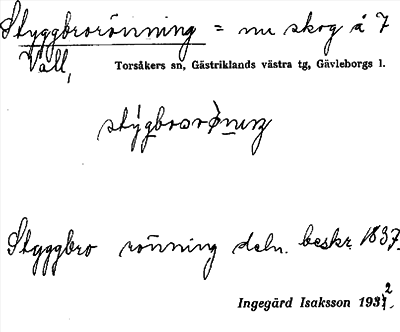 Styggbrorönning = nu skog å 7
Vall,
Torsåkers sn, Gästriklands västra tg, Gävleborgs l.
Stygggbro rönning deln. beskr. 1837.
Ingegärd Isaksson 1932.